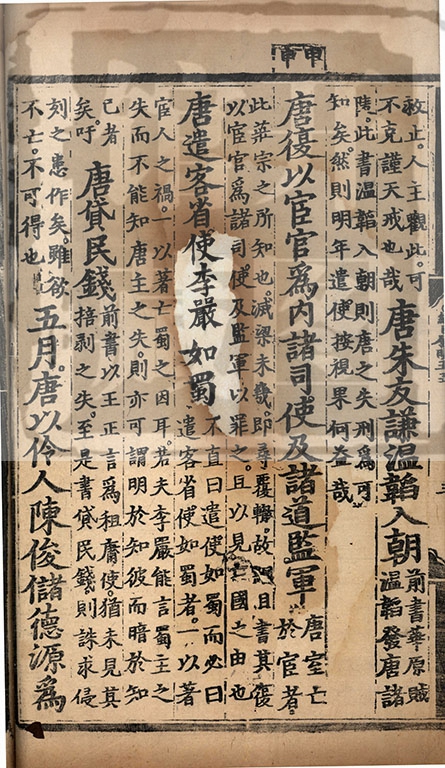 甲申
救止。人主觀此可
不克謹天戒也哉
唐朱友謙溫韜入朝
前書華原賊
溫韜發唐諸
陵。此書溫韜入朝則唐之失刑爲可
知矣。然則明年遣使按視果何益哉
唐復以宦官爲內諸司使及諸道監軍
唐室亡
於宦者。
此莊宗之所知也。滅梁未幾。即尋覆轍。故且書其復
以宦官爲諸司使及監軍以罪之。且以見亡國之由也
唐遣客省使李嚴如蜀
不直曰遣使如蜀而必曰
遣客省使如蜀者。一以著
宦人之禍。一以著亡蜀之因耳。若夫李嚴能言蜀主之
失而不能知唐主之失。則亦可謂明於知彼而暗於知
已者
矣。吁
唐貸民錢
前書以王正言爲租庸使。猶未見其
掊剥之失。至是書貸民錢。則誅求侵
刻之患作矣。雖欲
不亡。不可得也
五月。唐以伶人陳俊儲德源爲